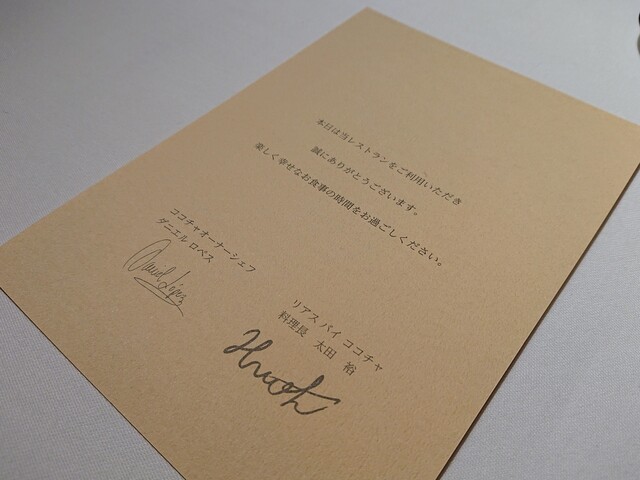 本日は当レストランをご利用いただき
誠にありがとうございます。
楽しく幸せなお食事の時間をお過ごしください。
ココチャオーナーシェフ
ダニエル ロペス
Daniel López
リアス バイ ココチャ
料理長 太田 裕